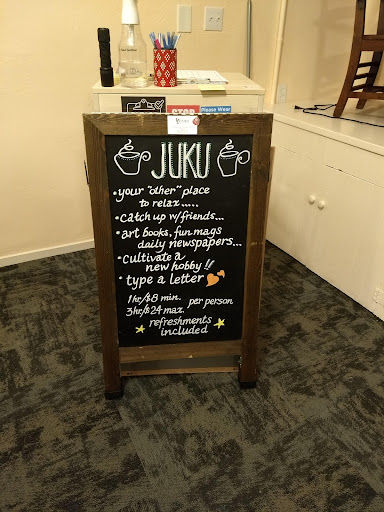 STOP
Please Wear
JUKU
• your "other" place
to relax.....
• catch up w/friends...
• art books, fun mags
daily newspapers...
• cultivate a
new hobby!!
• type a letter
1hr/$8 min. per person
3hr/$24 max.
refreshments
included